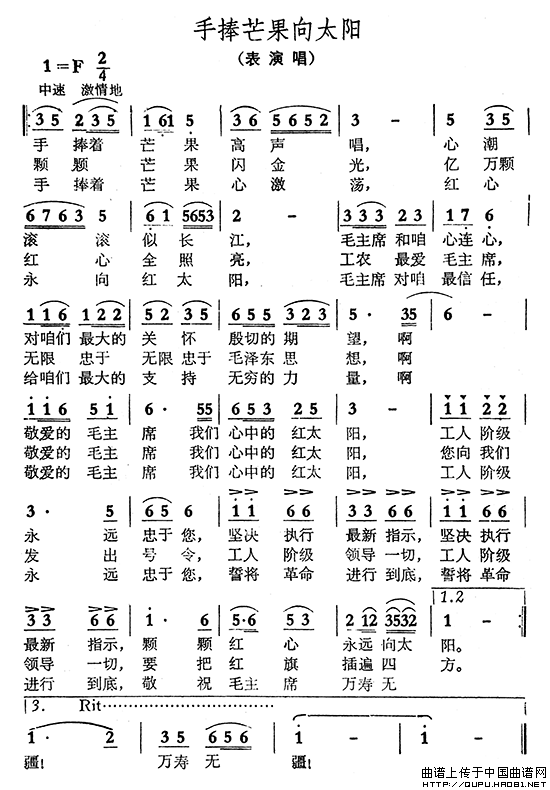 手捧芒果向太阳
(表演唱)
1=F 2/4
中速 激情地
3 5 2 3 5 3 5 1 6 1 5 3 6 5 6 5 2 3 - 5 3 5
手 捧着 芒 果 高 声 唱, 心 潮
颗 颗 芒 果 闪 金 光, 亿 万颗
手 捧着 芒 果 心 激 荡, 红 心
6 7 6 3 5 6 1 5 6 5 3 2 - 3 3 3 2 3 1 7 6
滚 滚 似 长 江, 毛主席 和咱 心连心,
红 心 全 照 亮, 工农 最爱 毛主席,
永 向 红 太 阳, 毛主席 对咱 最信任,
1 1 6 1 2 2 5 2 3 5 6 5 5 3 2 3 5 · 3 5 6 -
对咱们 最大的 关 怀 殷切的 期 望, 啊
无限 忠于 无限 忠于 毛泽东 思 想, 啊
给咱们 最大的 支 持 无穷的 力 量, 啊
1 1 6 5 1 6 · 5 5 6 5 3 2 5 3 - 1 1 2 2
敬爱的 毛主 席 我们 心中的 红太 阳, 工人 阶级
敬爱的 毛主 席 我们 心中的 红太 阳, 您向 我们
敬爱的 毛主 席 我们 心中的 红太 阳, 工人 阶级
3 · 5 6 5 6 1 1 6 6 3 3 6 6 1 1 6 6
永 远 忠于 您, 坚决 执行 最新 指示, 坚决 执行
发 出 号 令, 工人 阶级 领导 一切, 工人 阶级
永 远 忠于 您, 誓将 革命 进行 到底, 誓将 革命
1.2
3 3 6 6 1 · 6 5 · 6 5 3 2 1 2 3 5 3 2 1 -
最新 指示, 颗 颗 红 心 永远 向太 阳。
领导 一切, 要 把 红 旗 插遍 四 方。
进行 到底, 敬 祝 毛主 席 万寿 无
3. Rit
1 · 2 3 5 6 5 6 1 · 2 1 -
疆! 万寿 无 疆!
曲谱上传于中国曲谱网
http://QUPU.HAO81.NET